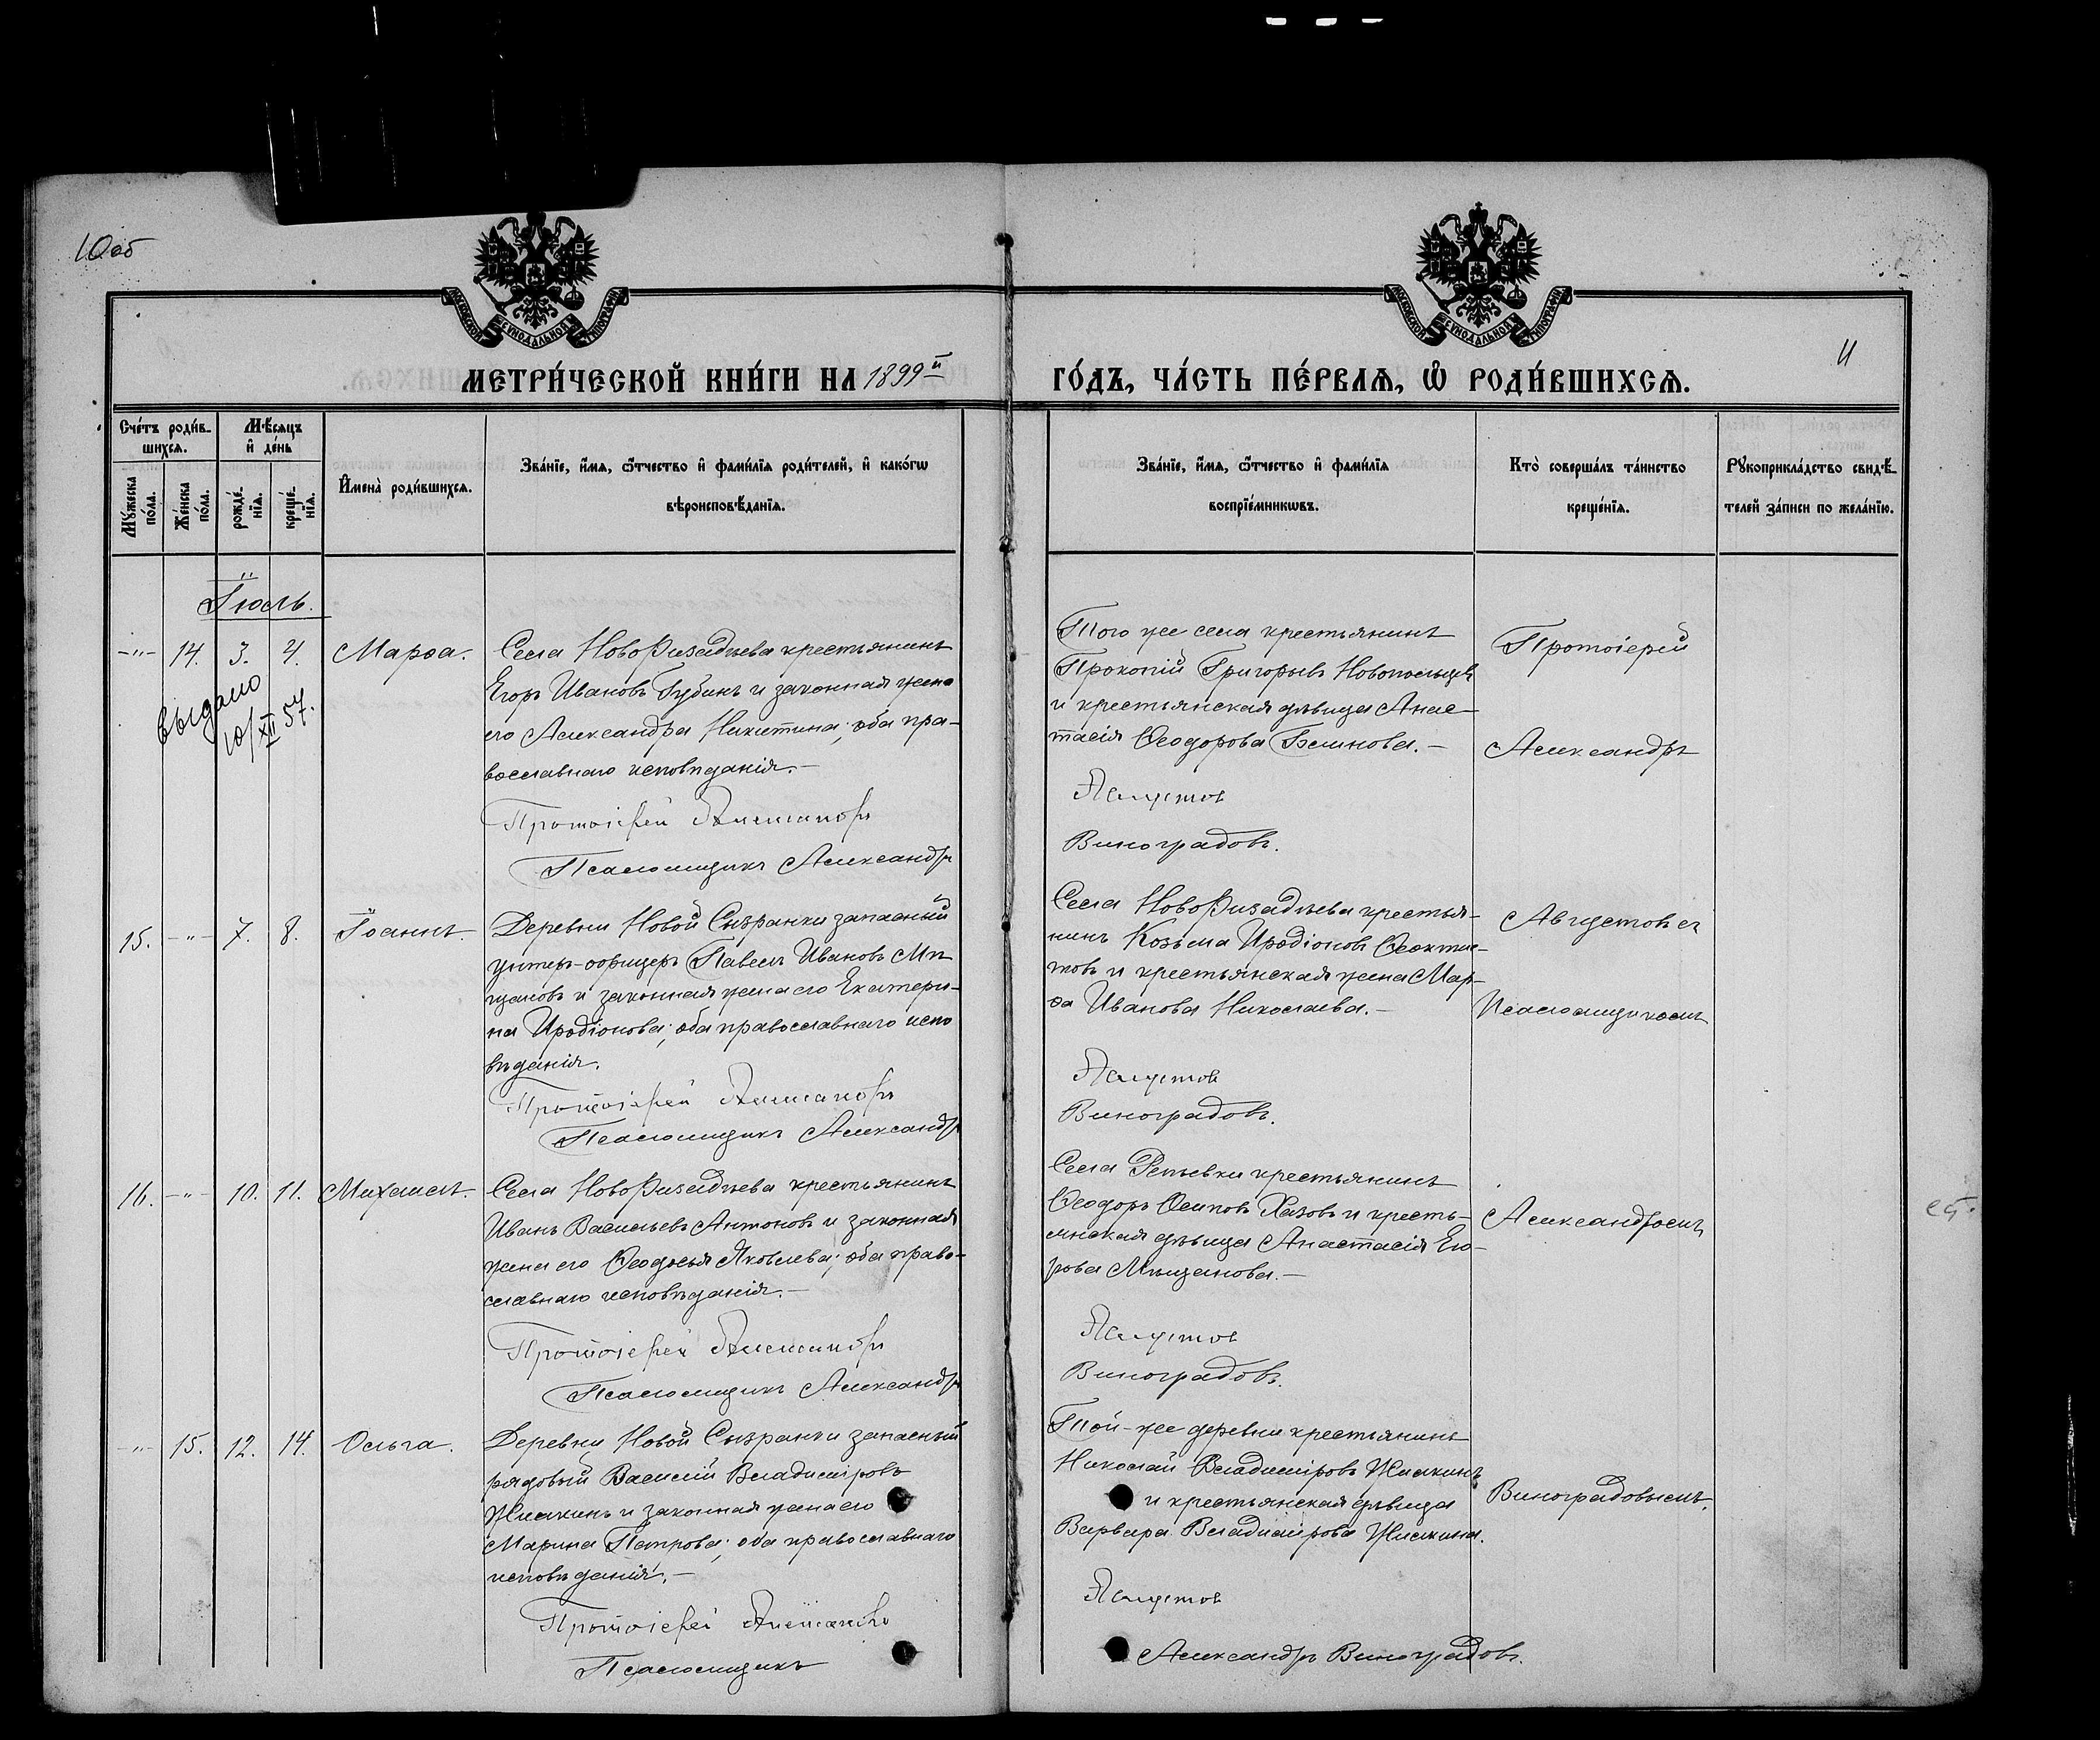 10 об
МОСКОВСКОЙ СѴНОДАЛЬНОЙ ТИПОГРАФІИ
МОСКОВСКОЙ СѴНОДАЛЬНОЙ ТИПОГРАФІИ
11
МЕТРИ́ЧЕСКОЙ КНИ́ГИ НА 1899й
ГО́ДЪ, ЧА́СТЬ ПЕ́РВАѦ, Ѡ҆ РОДИ́ВШИХСѦ.
Сче́тъ роди́в-
шихсѧ.
Мꙋ́жеска по́ла.
Же́нска по́ла.
Мѣ́сѧцъ
и҆ де́нь
рожде́-
нїѧ.
креще́-
нїѧ.
И҆мена̀ роди́вшихсѧ.
Зва́нїе, и҆́мѧ, ѻ҆́тчество и҆ фами́лїѧ роди́телей, и҆ како́гѡ
вѣроисповѣ́данїѧ.
Зва́нїе, и҆́мѧ, ѻ҆́тчество и҆ фами́лїѧ
воспрїе́мникѡвъ.
Кто̀ соверша́лъ та́инство
креще́нїѧ.
Рꙋкоприкла́дство свидѣ́-
телей за́писи по жела́нїю.
Іюль.
-"- 14. 3. 4. Марѳа.
Выдано
10/XII 57.
Села НовоРизадѣева крестьянинъ
Егоръ Ивановъ Губинъ и законная жена
его Александра Никитина; оба пра-
вославнаго исповѣданія.-
Протоіерей Александръ
Псаломщикъ Александръ
Того же села крестьянинъ
Прокопій Григорьевъ Новопольцев
и крестьянская дѣвица Анас-
тасія Ѳеодорова Блинова.-
Августовъ
Виноградовъ.
Протоіерей
Александръ
15. -"- 7. 8. Іоаннъ.
Деревни Новой Сызранки запасный
унтеръ-офицеръ Павелъ Ивановъ Мѣ
щановъ и законная жена его Екатери-
на Иродіонова; оба православнаго испо
вѣданія.
Протоіерей Александръ
Псаломщикъ Александръ
Села НовоРизадѣева крестья-
нинъ Козьма Иродіоновъ Ѳеоктис-
товъ и крестьянская жена Мар-
ѳа Иванова Николаева.-
Августовъ
Виноградовъ.
Августовъ съ
Псаломщикомъ
16. -"- 10. 11. Михаилъ.
Села НовоРизадѣева крестьянинъ
Иванъ Васильевъ Антоновъ и законная
жена его Ѳеодосья Яковлева; оба право-
славнаго исповѣданія.-
Протоіерей Александръ
Псаломщикъ Александръ
Села Репьевки крестьянинъ
Ѳеодоръ Осиповъ Хазовъ и кресть-
янская дѣвица Анастасія Его-
рова Мѣщанова.-
Августовъ
Виноградовъ.
Александромъ
-"- 15. 12. 14. Ольга.
Деревни Новой Сызранки запасный
рядовый Василій Владиміровъ
Жилкинъ и законная жена его
Марина Петрова; оба православнаго
исповѣданія.-
Протоіерей Александръ
Псаломщикъ
Той-же деревни крестьянинъ
Николай Владиміровъ Жилкинъ
и крестьянская дѣвица
Варвара Владимірова Жилкина.
Августовъ
Александръ Виноградовъ.
Виноградовымъ.